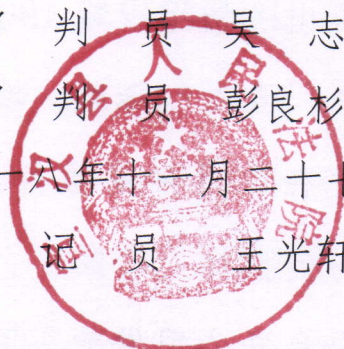 判员 吴志
判员 彭良杉
八年十一月二十
记员 王光轩
人民法院